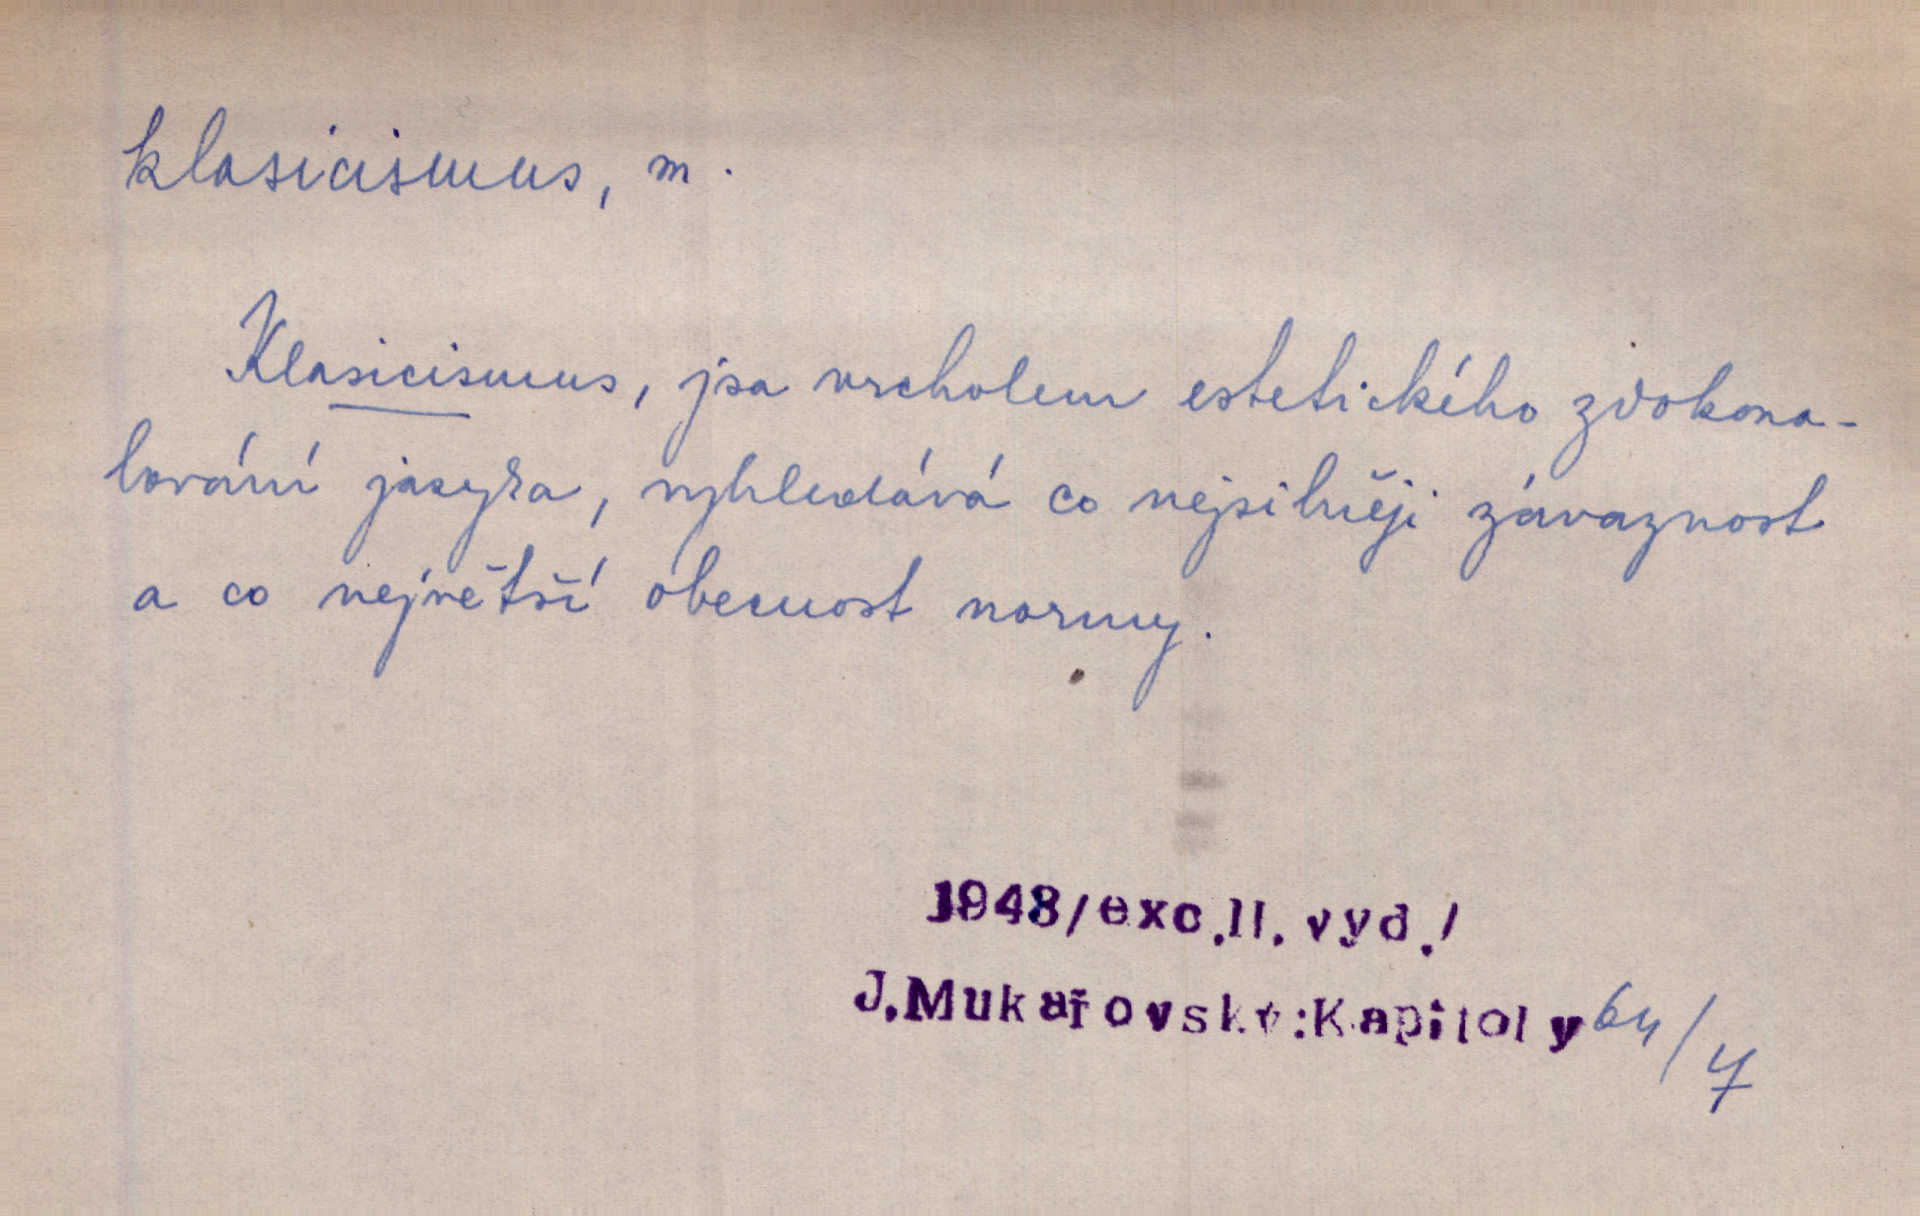 klasicismus, m.
Klasicismus, jsa vrcholem estetického zdokona-
lování jazyka, vyhledává co nejsilněji závaznost
a co největší obecnost normy.
1948/exc.II. vyd./
J.Mukařovský:Kapitoly 64/7